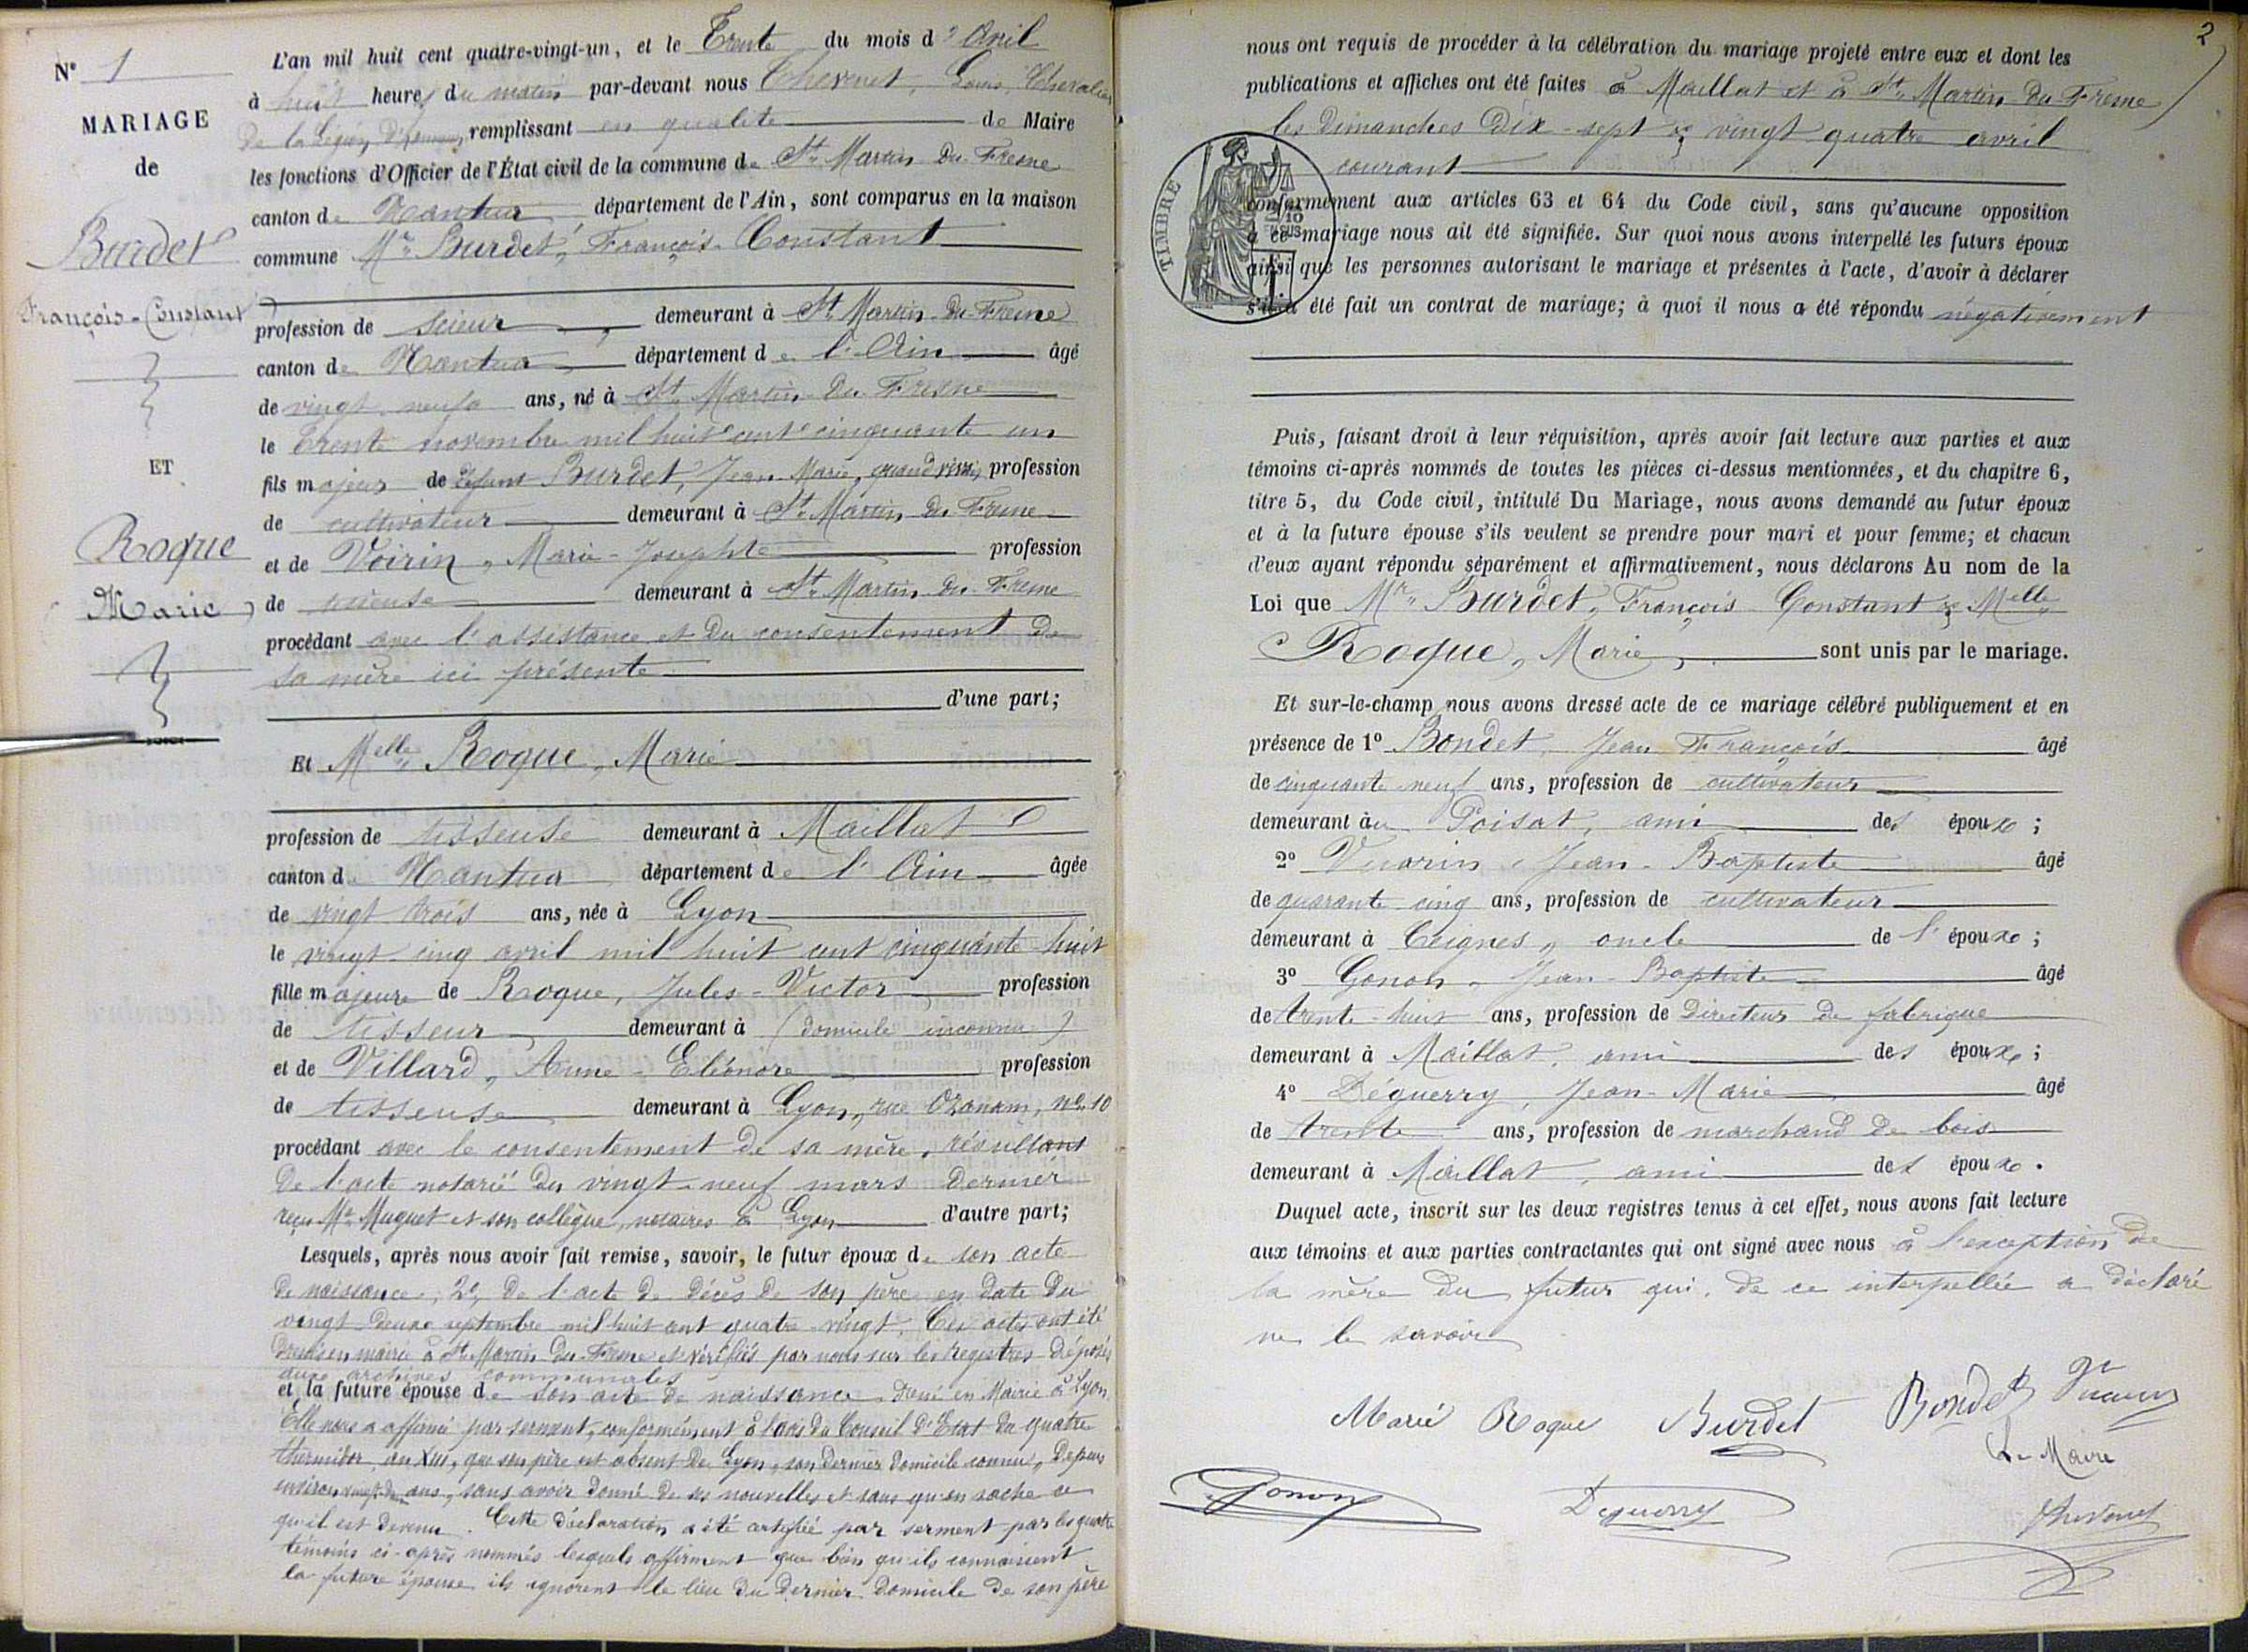 N° 1
MARIAGE
de
Burdet
François-Constant
ET
Roque
Marie
L'an mil huit cent quatre-vingt-un, et le Trente du mois d'Avril
à huit heures du matin par-devant nous Thevenet, Louis, Chevalier
de la Légion D'honneur, remplissant en qualité de Maire
les fonctions d'Officier de l'État civil de la commune de St. Martin-du-Fresne
canton de Nantua département de l'Ain, sont comparus en la maison
commune Mr. Burdet, François-Constant
profession de scieur, demeurant à St. Martin-du-Fresne
canton de Nantua département de l'Ain âgé
de vingt-neuf ans, né à St. Martin-du-Fresne
le Trente novembre mil huit cent cinquante-un
fils majeur de défunt Burdet, Jean-Marie, quand vivait, profession
de cultivateur demeurant à St. Martin-du-Fresne
et de Voirin, Marie-Josephte profession
de demeurant à St. Martin-du-Fresne
procédant avec l'assistance et du consentement de
sa mère ici présente
d'une part;
Et Melle Roque, Marie
profession de tisseuse demeurant à Maillat
canton de Nantua département de l'Ain âgée
de vingt-trois ans, née à Lyon
le vingt-cinq avril mil huit cent cinquante-huit
fille majeure de Roque, Jules-Victor profession
de tisseur demeurant à (domicile inconnu)
et de Villard, Anne-Eléonore profession
de tisseuse demeurant à Lyon, rue Ozanam, no. 10
procédant avec le consentement de sa mère, résultant
de l'acte notarié du vingt-neuf mars dernier
reçu Me. Muguet et son collègue, notaires à Lyon d'autre part;
Lesquels, après nous avoir fait remise, savoir, le futur époux de son acte
de naissance, 2°, de l'acte de décès de son père en date du
vingt-deux septembre mil huit cent quatre-vingt. Ces actes ont été
dressés en mairie à St. Martin-du-Fresne et vérifiés par nous sur les registres déposés
aux archives communales
et la future épouse de son acte de naissance, dressé en Mairie à Lyon.
Elle nous a affirmé par serment, conformément à l'avis du Conseil d'Etat du quatre
thermidor, an XIII, que son père est absent de Lyon, son dernier domicile connu, depuis
environ vingt-deux ans, sans avoir donné de ses nouvelles et sans qu'on sache ce
qu'il est devenu. Cette déclaration a été certifiée par serment par les quatre
témoins ci-après nommés lesquels affirment que bien qu'ils connaissent
la future épouse ils ignorent le lieu du dernier domicile de son père
2
nous ont requis de procéder à la célébration du mariage projeté entre eux et dont les
publications et affiches ont été faites à Maillat et à St. Martin-du-Fresne
les dimanches dix-sept & vingt-quatre avril
courant
TIMBRE
2/10
EN SUS
conformément aux articles 63 et 64 du Code civil, sans qu'aucune opposition
à ce mariage nous ait été signifiée. Sur quoi nous avons interpellé les futurs époux
ainsi que les personnes autorisant le mariage et présentes à l'acte, d'avoir à déclarer
s'il a été fait un contrat de mariage; à quoi il nous a été répondu négativement
Puis, faisant droit à leur réquisition, après avoir fait lecture aux parties et aux
témoins ci-après nommés de toutes les pièces ci-dessus mentionnées, et du chapitre 6,
titre 5, du Code civil, intitulé Du Mariage, nous avons demandé au futur époux
et à la future épouse s'ils veulent se prendre pour mari et pour femme; et chacun
d'eux ayant répondu séparément et affirmativement, nous déclarons Au nom de la
Loi que Mr. Burdet, François-Constant & Melle
Roque, Marie, sont unis par le mariage.
Et sur-le-champ nous avons dressé acte de ce mariage célébré publiquement et en
présence de 1° Bondet, Jean François âgé
de cinquante-neuf ans, profession de cultivateur
demeurant au Poisat, ami des époux;
2° Vuarin, Jean-Baptiste âgé
de quarante-cinq ans, profession de cultivateur
demeurant à Ceignes, oncle de l'époux;
3° Gonon, Jean-Baptiste âgé
de trente-huit ans, profession de Directeur de fabrique
demeurant à Maillat, ami des époux;
4° Déguerry, Jean-Marie âgé
de trente ans, profession de marchand de bois
demeurant à Maillat, ami des époux.
Duquel acte, inscrit sur les deux registres tenus à cet effet, nous avons fait lecture
aux témoins et aux parties contractantes qui ont signé avec nous à l'exception de
la mère du futur qui, de ce interpellée a déclaré
ne le savoir
Marie Roque Burdet Bondet Vuarin
Le Maire
Gonon Deguerry Thevenet